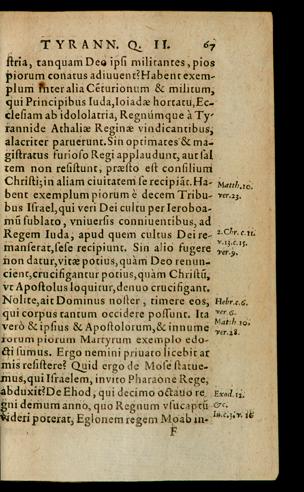 TYRANN. Q. II. 67
stria, tanquam Deo ipsi militantes, pios
piorum conatus adiuuent? Habent exem-
plum inter alia Céturionum & militum,
qui Principibus Iuda, Ioiadæ hortatu, Ec-
clesiam ab idololatria, Regnúmque à Ty-
rannide Athaliæ Reginæ vindicantibus,
alacriter paruerunt. Sin optimates & ma-
gistratus furioso Regi applaudunt, aut sal
tem non resistunt, præsto est consilium
Christi; in aliam ciuitatem se recipiāt. Ha-
bent exemplum piorum è decem Tribu-
bus Israel, qui veri Dei cultu per Ieroboa-
mū sublato, vniuersis conniuentibus, ad
Regem Iuda, apud quem cultus Dei re-
manserat, sese recipiunt. Sin alio fugere
non datur, vitæ potius, quàm Deo renun-
cient, crucifigantur potius, quàm Christū,
vt Apostolus loquitur, denuo crucifigant.
Nolite, ait Dominus noster, timere eos,
qui corpus tantum occidere possunt. Ita
verò & ipsius & Apostolorum, & innume
rorum piorum Martyrum exemplo edo-
cti sumus. Ergo nemini priuato licebit ar
mis resistere? Quid ergo de Mose statue-
mus, qui Israelem, inuito Pharaone Rege,
abduxit? De Ehod, qui decimo octauo re
gni demum anno, quo Regnum vsucaptū
videri poterat, Eglonem regem Moab in-
F
Matth. 10.
ver. 23.
2. Chr. c. 11.
v. 13. c. 15.
ver. 9.
Hebr. c. 6.
ver. 6.
Matth 10.
ver. 28.
Exod. 12.
&c.